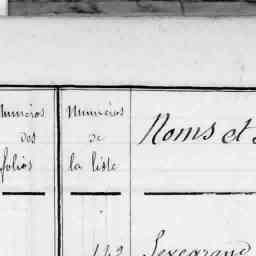 Numéros
des
folios
Numéros
de
la liste
Noms et
142